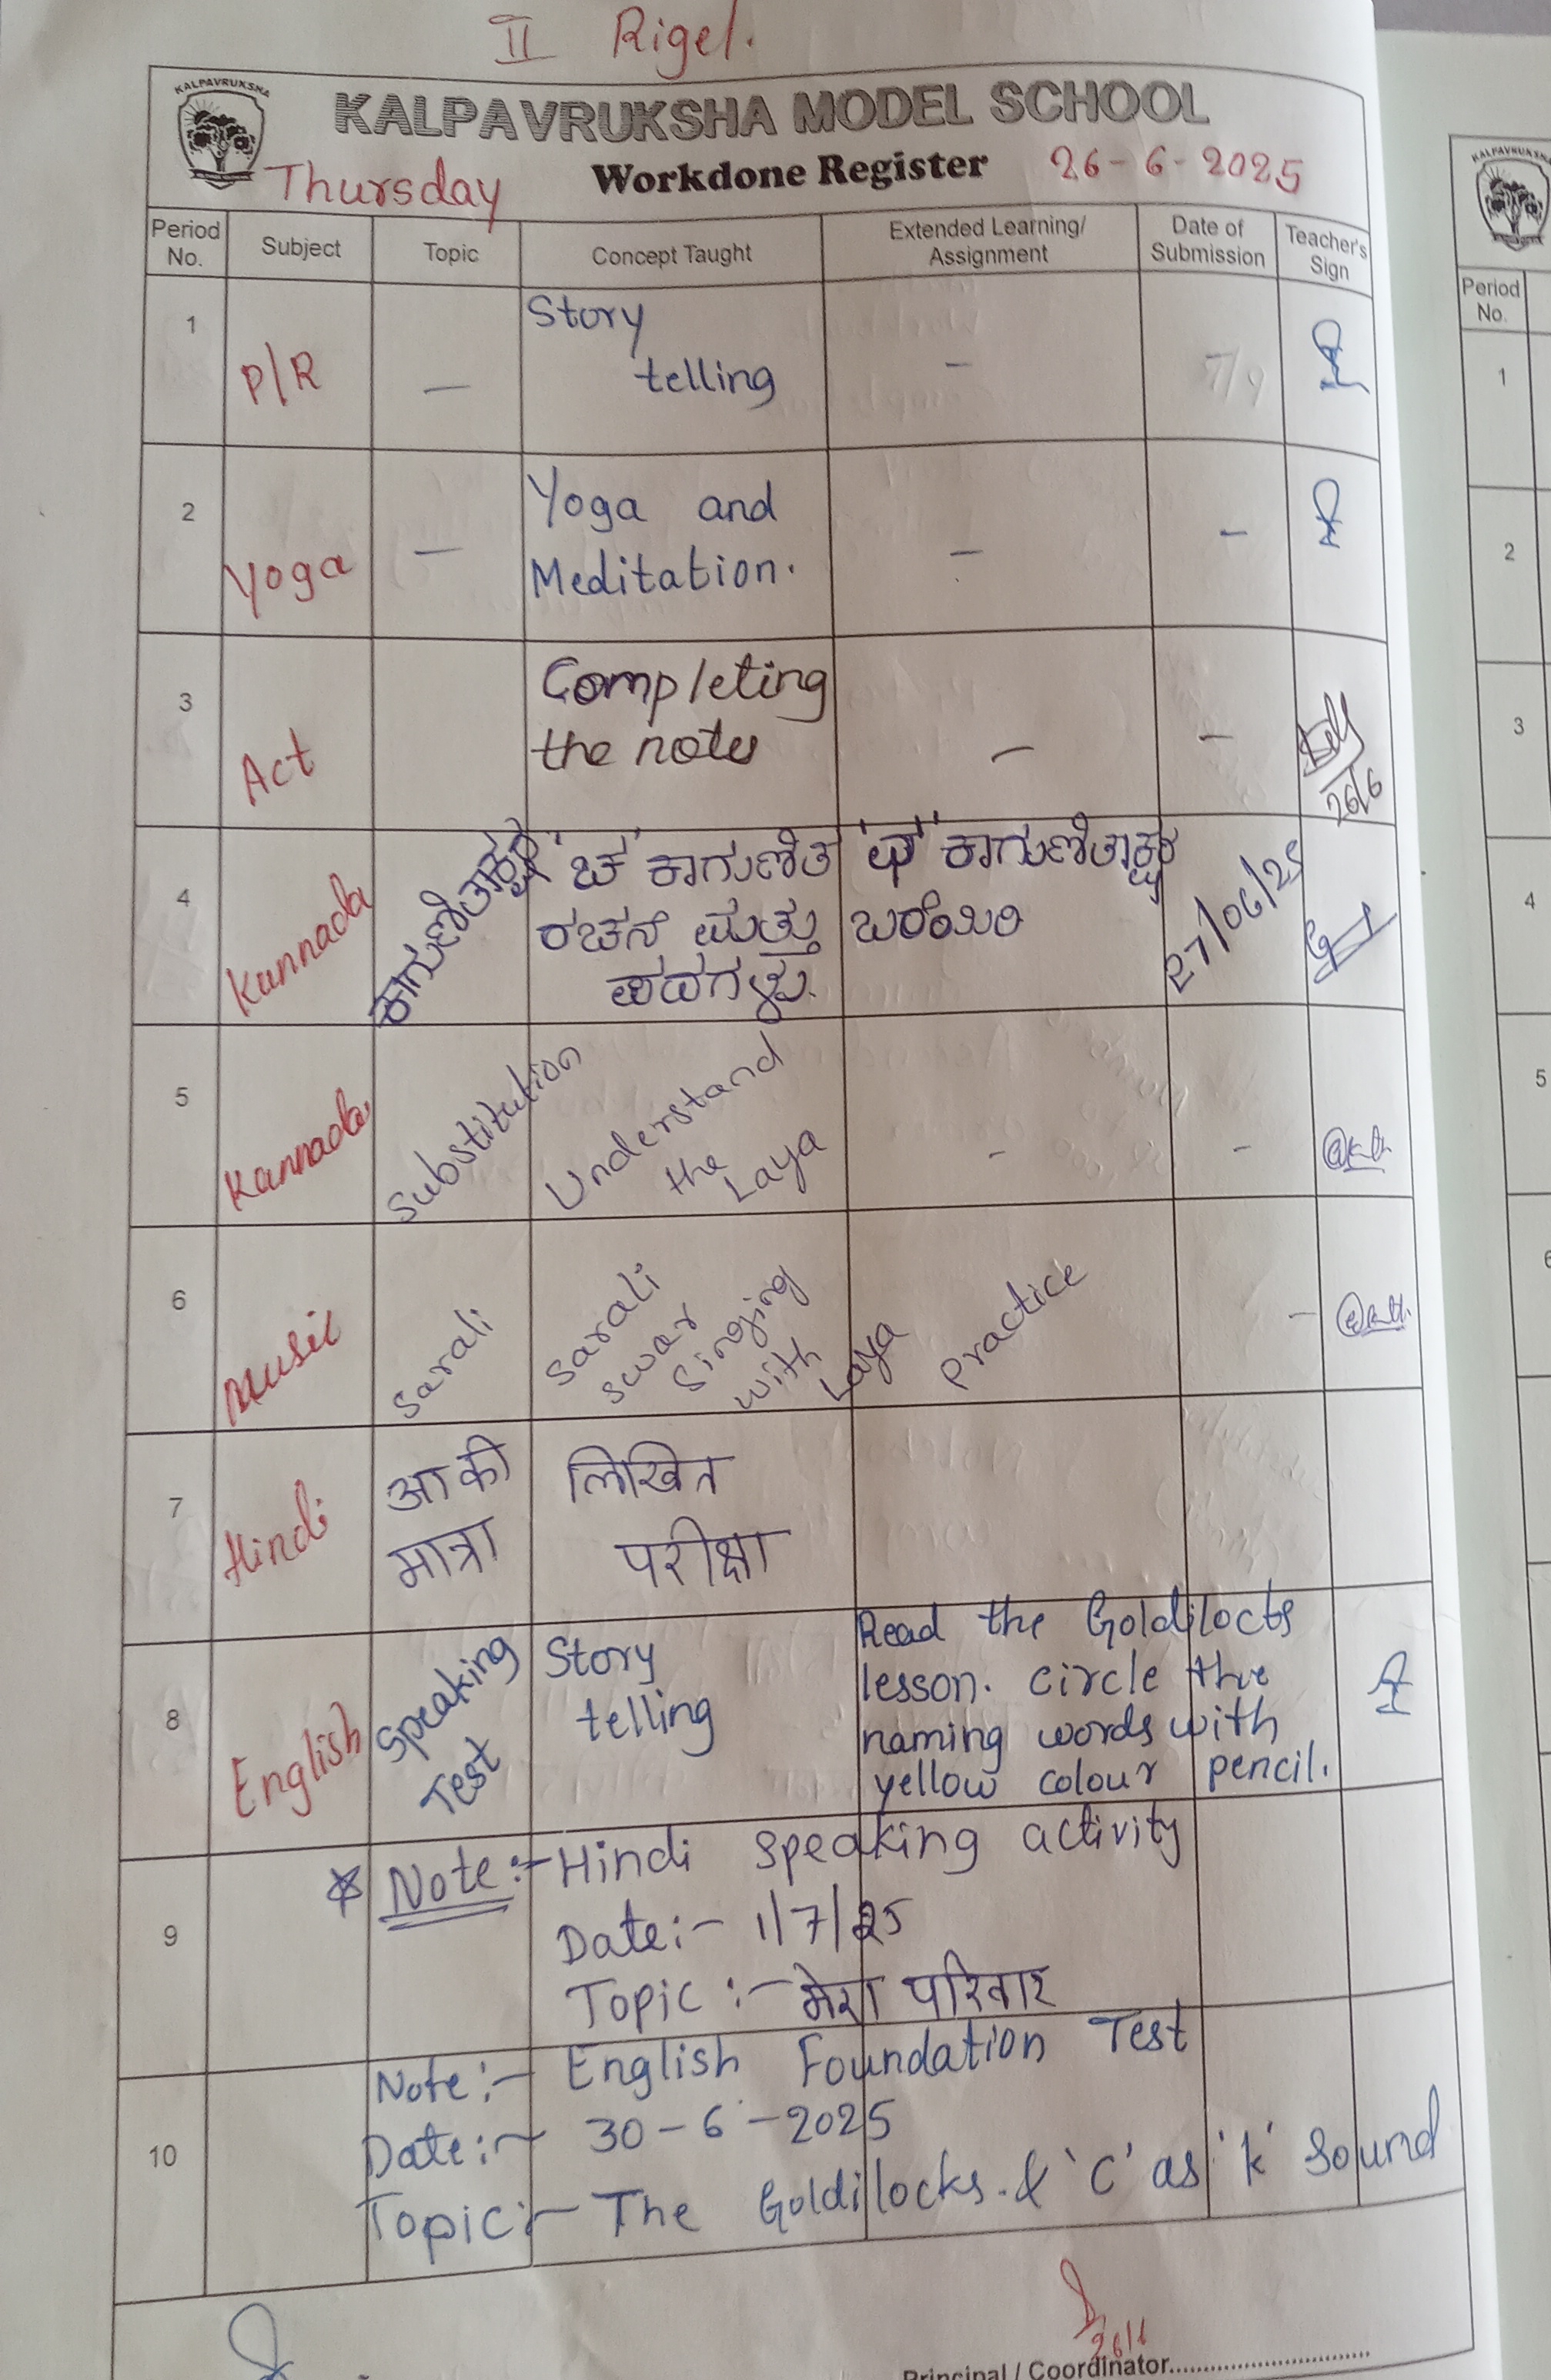 II Rigel.
KALPAVRUKSHA
KALPAVRUKSHA MODEL SCHOOL
Thursday Workdone Register 26-6-2025
Period No. Subject Topic Concept Taught Extended Learning/ Assignment Date of Submission Teacher's Sign
1 P/R — Story telling –
2 Yoga — Yoga and Meditation. – –
3 Act Completing the notes – – 26/6
4 Kannada ಕಾಗುಣಿತಾಕ್ಷರ 'ಚ' ಕಾಗುಣಿತ ರಚನೆ ಮತ್ತು ಪದಗಳು. ಕಾಗುಣಿತಾಕ್ಷರ ಬರೆಯಿರಿ 27/06/25
5 Kannada Substitution Understand the Laya – –
6 Music Sarali Sarali swar Singing with Laya Practice –
7 Hindi आ की मात्रा लिखित परीक्षा
8 English Speaking Test Story telling Read the Goldilocks lesson. circle the naming words with yellow colour pencil.
9 Note:- Hindi speaking activity
Date:- 1/7/25
Topic:- मेरा परिवार
10 Note:- English Foundation Test
Date:- 30-6-2025
Topic:- The Goldilocks. & 'C' as 'k' Sound
26/6
Principal / Coordinator
KALPAVRUKSHA
Period No.
1
2
3
4
5
6